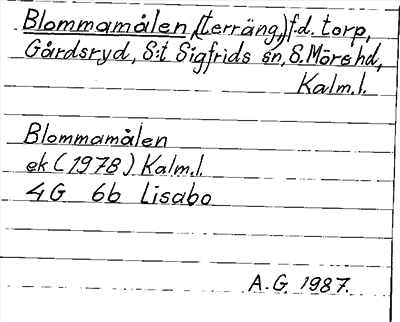 Blommamålen, (terräng,) f.d. torp,
Gårdsryd, S:t Sigfrids sn, S. Möre hd,
Kalm.l.
Blommamålen
ek (1978) Kalm.l.
4G 6b Lisabo
A.G. 1987.